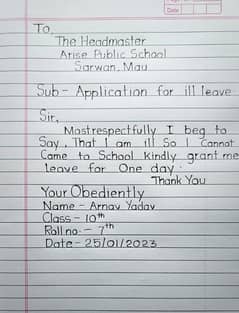 Date
To,
The Headmaster
Arise Public School
Sarwan, Mau
Sub - Application for ill leave
Sir,
Mostrespectfully I beg to
Say, That I am ill So I Cannot
Came to School Kindly grant me
leave for One day.
Thank You
Your Obediently
Name - Arnav Yadav
Class - 10th
Roll no. - 7th
Date - 25/01/2023